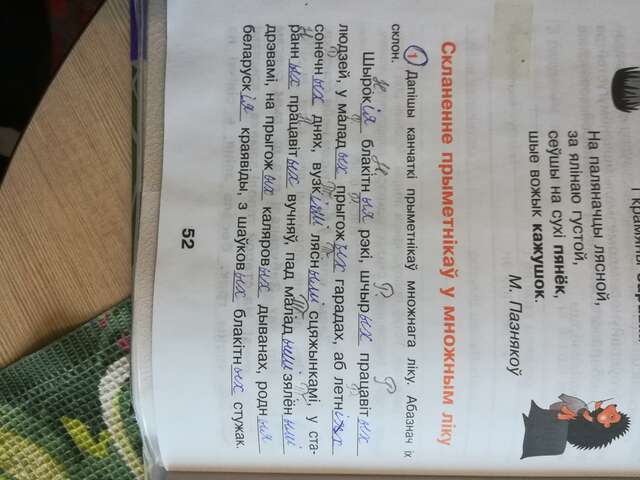 крамяны
На паляначцы лясной,
за ялінаю густой,
сеўшы на сухі пянёк,
шые вожык кажушок.
М. Пазнякоў
Скланенне прыметнікаў у множным ліку
1 Дапішы канчаткі прыметнікаў множнага ліку. Абазнач іх
склон.
Н. Н. Р. Р.
Шырокія блакітныя рэкі, шчырых працавітых
людзей, у маладых прыгожых гарадах, аб летніх
сонечных днях, вузкімі ляснымі сцяжынкамі, у ста-
ранных працавітых вучняў, пад маладымі зялёнымі
дрэвамі, на прыгожых каляровых дыванах, родныя
беларускія краявіды, з шаўковых блакітных стужак.
52